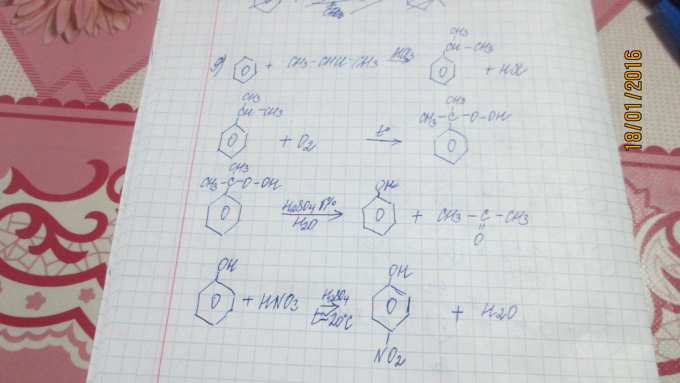 CH₃
CH₃
CH–CH₃
+ CH₃–CHCl–CH₃
+ HCl
CH₃
CH–CH₃
+ O₂
t°
CH₃
CH₃–C–O–OH
CH₃
CH₃–C–O–OH
H₂SO₄
H₂O
OH
+ CH₃–C–CH₃
O
OH
+ HNO₃
H₂SO₄
20°C
OH
NO₂
+ H₂O
18/01/2016